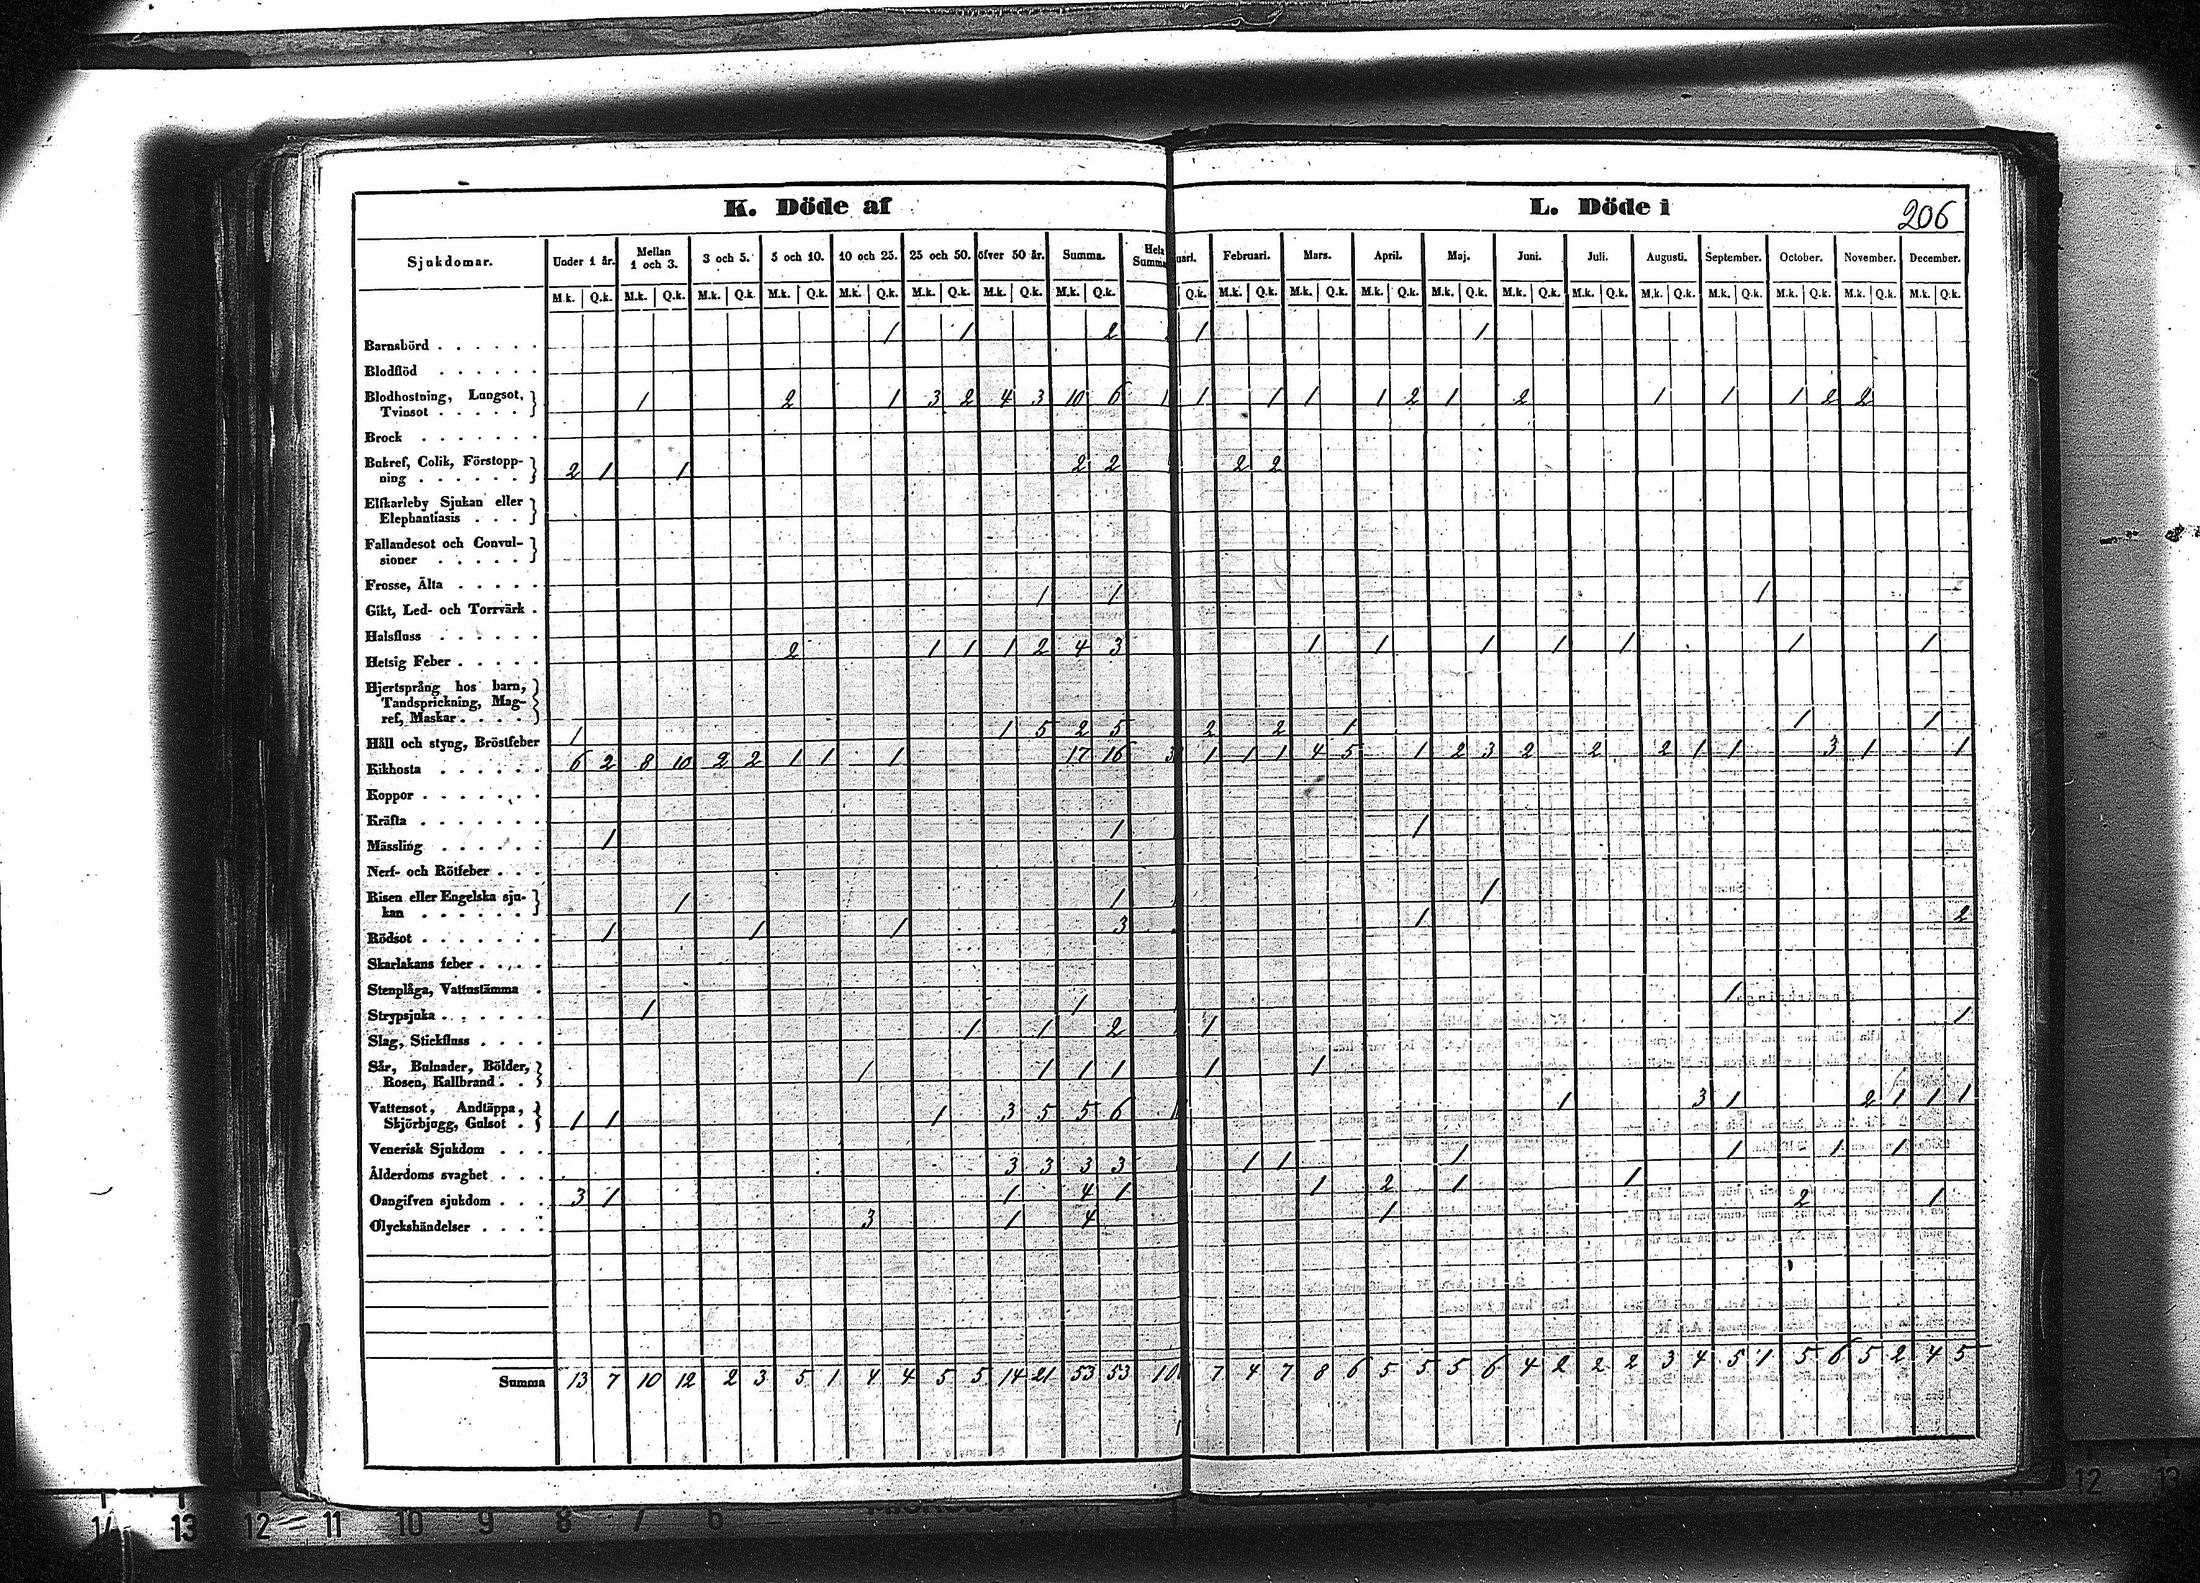 K. Döde af L. Döde i 206
Sjukdomar. Under 1 år. Mellan 1 och 3. 3 och 5. 5 och 10. 10 och 25. 25 och 50. öfver 50 år. Summa. Hela Summa uari. Februari. Mars. April. Maj. Juni. Juli. Augusti. September. October. November. December.
M.k. Q.k. M.k. Q.k. M.k. Q.k. M.k. Q.k. M.k. Q.k. M.k. Q.k. M.k. Q.k. M.k. Q.k. Q.k. M.k. Q.k. M.k. Q.k. M.k. Q.k. M.k. Q.k. M.k. Q.k. M.k. Q.k. M.k. Q.k. M.k. Q.k. M.k. Q.k. M.k. Q.k. M.k. Q.k.
Barnsbörd 1 1 2 1 1
Blodflöd
Blodhostning, Lungsot,
Tvinsot 1 2 1 3 2 4 3 10 6 1 1 1 1 1 2 1 2 1 1 1 2 2
Brock
Bukref, Colik, Förstopp-
ning 2 1 1 2 2 2 2
Elfkarleby Sjukan eller
Elephantiasis
Fallandesot och Convul-
sioner
Frosse, Älta
Gikt, Led- och Torrvärk 1 1 1
Halsfluss
Hetsig Feber 2 1 1 1 2 4 3 1 1 1 1 1 1 1
Hjertsprång hos barn,
Tandsprickning, Mag-
ref, Maskar
Håll och styng, Bröstfeber 1 1 5 2 5 2 2 1 1 1
Kikhosta 6 2 8 10 2 2 1 1 1 17 16 3 1 1 1 4 5 1 2 3 2 2 2 1 1 3 1 1
Koppor
Kräfta
Mässling 1 1 1
Nerf- och Rötfeber
Risen eller Engelska sju-
kan 1 1 1
Rödsot 1 1 1 3 1 2
Skarlakans feber
Stenplåga, Vattustämma
Strypsjuka 1 1 1
Slag, Stickfluss 1 1 2 1 1
Sår, Bulnader, Bölder,
Rosen, Kallbrand 1 1 1 1 1 1
Vattensot, Andtäppa,
Skjörbjugg, Gulsot 1 1 1 3 5 5 6 1 1 3 1 2 1 1 1
Venerisk Sjukdom
Ålderdoms svaghet 3 3 3 3 1 1 1 1 1 1
Oangifven sjukdom 3 1 1 4 1 1 2 1 1
Olyckshändelser 3 1 4 1 2 1
Summa 13 7 10 12 2 3 5 1 4 4 5 5 14 21 53 53 10 7 4 7 8 6 5 5 5 6 4 2 2 2 3 4 5 1 5 6 5 2 4 5
14 13 12 11 10 9 8 7 6 12 13